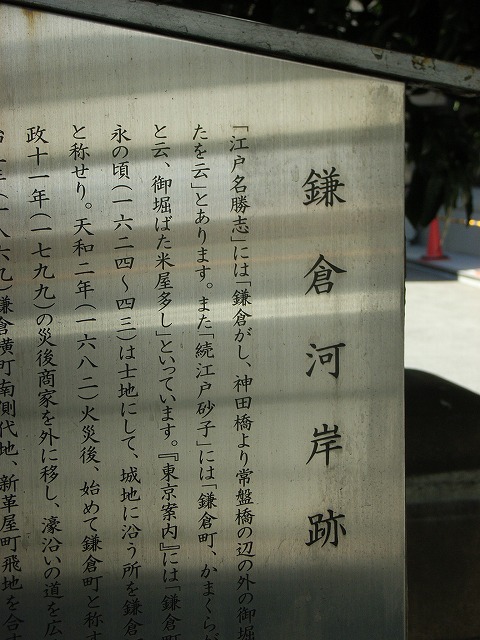 鎌倉河岸跡
「江戸名勝志」には「鎌倉がし、神田橋より常盤橋の辺の外の御堀
たを云」とあります。また「続江戸砂子」には「鎌倉町、かまくらが
と云、御堀ばた米屋多し」といっています。『東京案内』には「鎌倉町
永の頃(一六二四〜四三)は士地にして、城地に沿う所を鎌倉
と称せり。天和二年(一六八二)火災後、始めて鎌倉町と称す
政十一年(一七九九)の災後商家を外に移し、濠沿いの道を広
治二年(一八六九)鎌倉横町南側代地、新革屋町飛地を合す